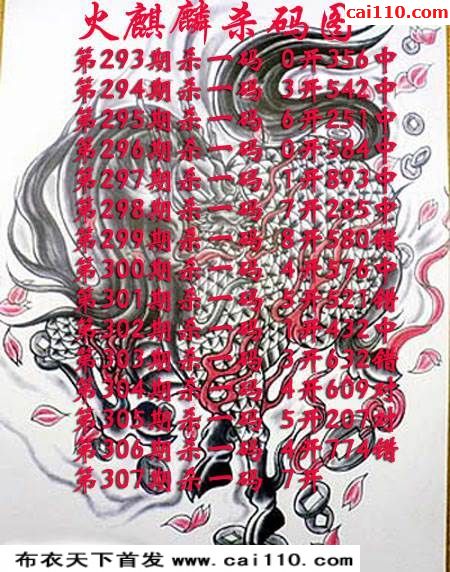 cai110.com
火麒麟杀码图
第293期杀一码 0开356中
第294期杀一码 3开542中
第295期杀一码 6开251中
第296期杀一码 0开584中
第297期杀一码 1开893中
第298期杀一码 7开285中
第299期杀一码 8开580错
第300期杀一码 4开576中
第301期杀一码 5开521错
第302期杀一码 1开432中
第303期杀一码 3开632错
第304期杀一码 4开609对
第305期杀一码 5开207对
第306期杀一码 4开774错
第307期杀一码 7开
布衣天下首发 www.cai110.com